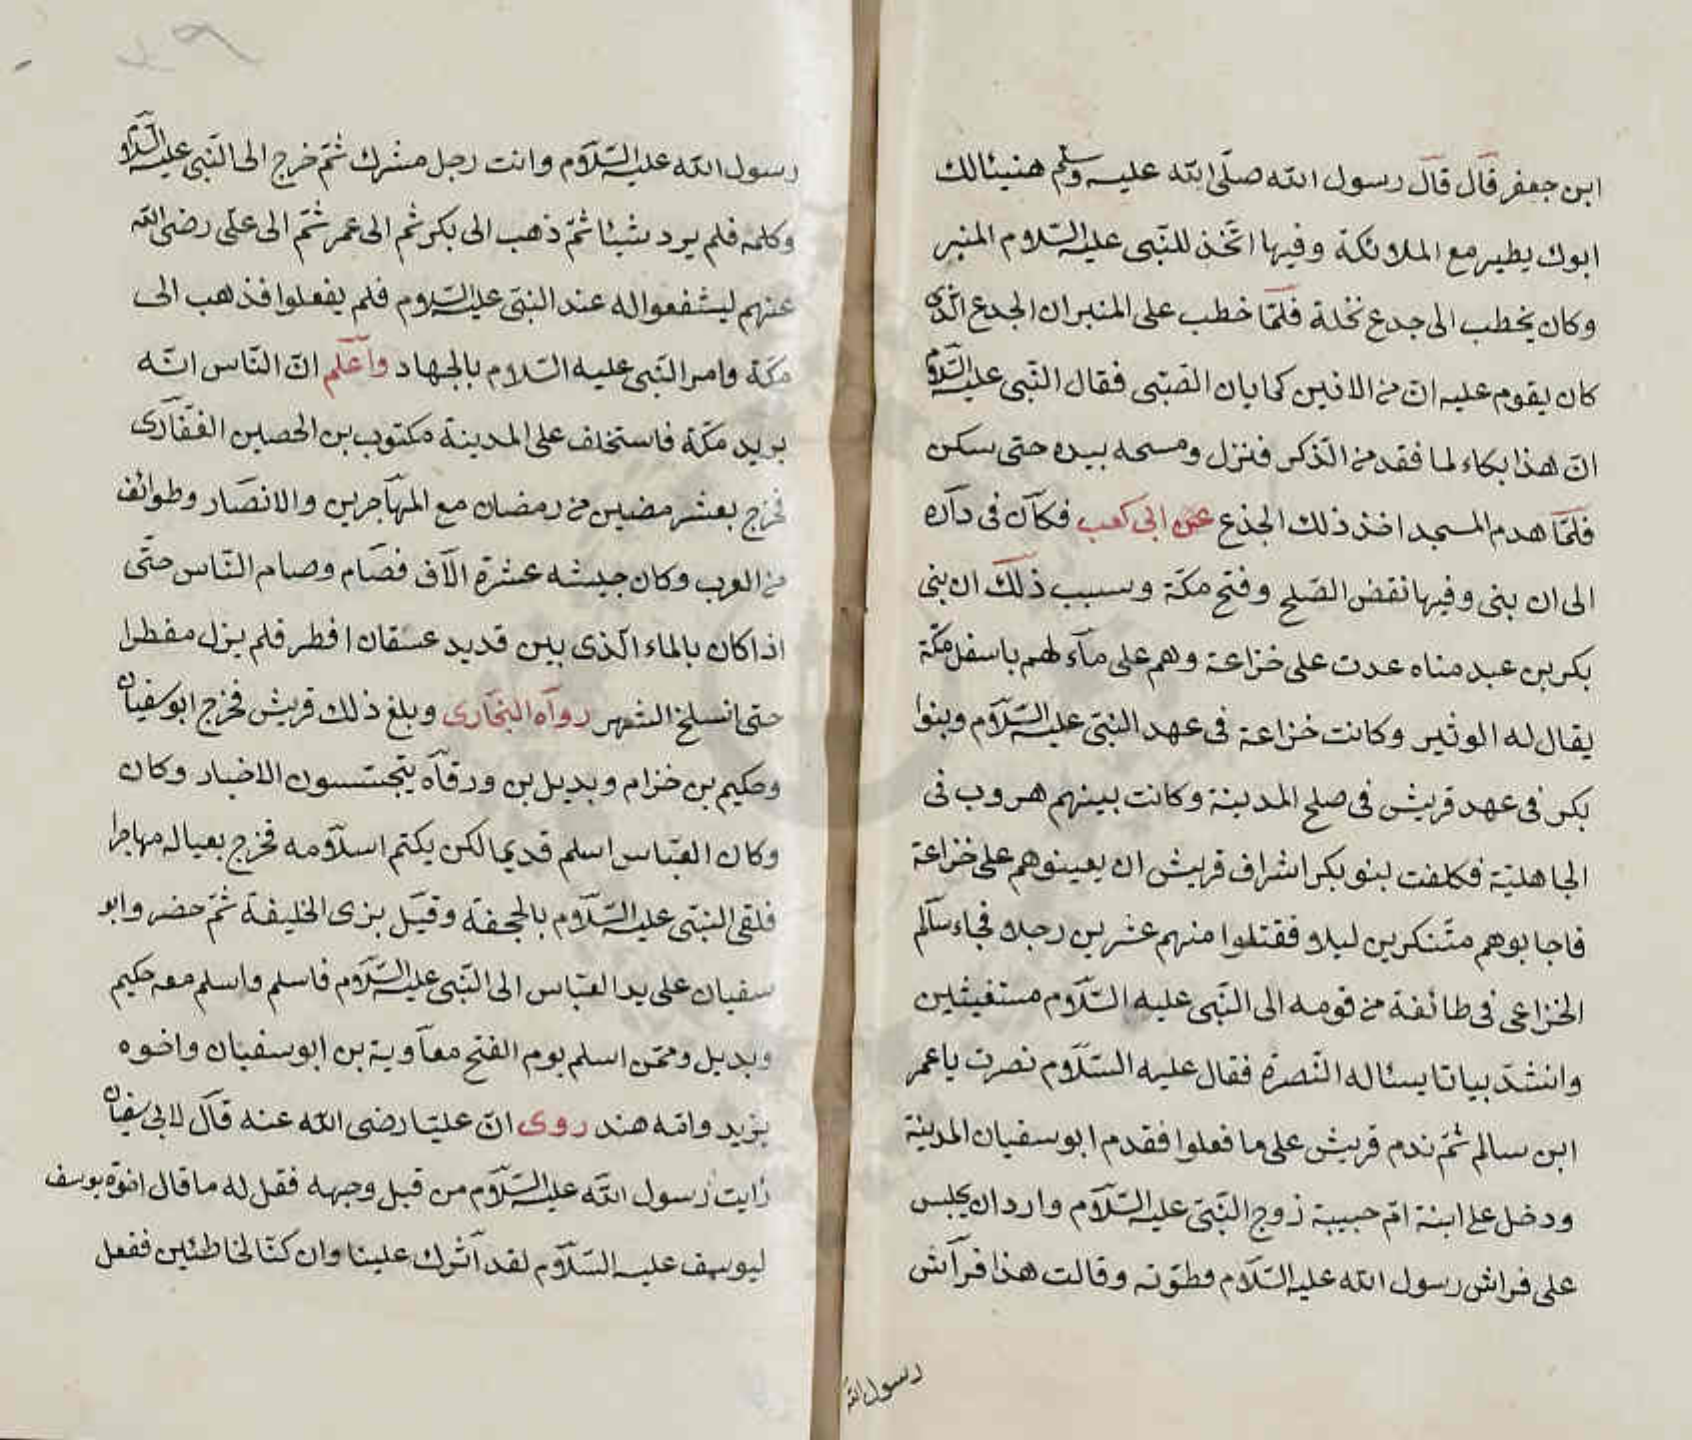 ابن جعفر قال قال رسول الله صلّى الله عليه وسلم هنيئالك
ابوك يطير مع الملائكة وفيها اتّخذ للنّبى عليه السّلام المنبر
وكان يخطب الى جدع نخلة فلمّا خطب على المنبر ان الجدع الّذى
كان يقوم عليه انّ من الانين كما يان الصّبى فقال النّبى عليه السّلام
انّ هذا بكاء لما فقد من الذّكر فنزل ومسحه بيده حتى سكن
فلمّا هدم المسجد اخذ ذلك الجذع عن ابى كعب فكان فى داره
الى ان بنى وفيها نقض الصّلح وفتح مكّة وسبب ذلك ان بنى
بكر بن عبد مناه عدت على خزاعة وهم على ماء لهم باسفل مكّة
يقال له الوثير وكانت خزاعة فى عهد النبّى عليه السّلام وبنوا
بكر فى عهد قريش فى صلح المدينة وكانت بينهم هروب فى
الجاهليّة فكلفت بنو بكر اشراف قريش ان يعينوهم على خزاعة
فاجابوهم متّنكرين ليلا فقتلوا منهم عشرين رجلا فجاء سالم
الخزاعى فى طائفة من قومه الى النّبى عليه السّلام مستغيثين
وانشدّ بياتا يسئاله النّصرة فقال عليه السّلام نصرت يا عمر
ابن سالم ثمّ ندم قريش على ما فعلوا فقدم ابو سفيان المدينة
ودخل على ابنة امّ حبيبة زوج النّبىّ عليه السّلام واردان يجلس
على فراش رسول الله عليه السّلام فطوّته وقالت هذا فراش
رسول الله
رسول الله عليه السّلام وانت رجل مشرك ثمّ خرج الى النّبى عليه السّلام
وكلمه فلم يرد شيئا ثمّ ذهب الى بكر ثم الى عمر ثمّ الى علّى رضى الله
عنهم ليشفعوا له عند النبىّ عليه السّلام فلم يفعلوا فذهب الى
مكّة وامر النّبى عليه السّلام بالجهاد واعلم انّ النّاس انّه
يريد مكّة فاستخلف على المدينة مكتوب بن الحصين الغفّارى
فخرج بعشر مضين من رمضان مع المهاجرين والانصار وطوائف
من العرب وكان جيشه عشرة الآف فصام وصام النّاس حتّى
اذا كان بالماء الّذى بين قديد عسفان افطر فلم يزل مفطرا
حتى انسلخ الشهر رواه البخارى وبلغ ذلك قريش فخرج ابو سفيان
وحكيم بن خزام وبديل بن ورقآه يتجسّسون الاخبار وكان
وكان العبّاس اسلم قديما لكن يكتم اسلامه فخرج بعياله مهاجرا
فلقى النبّى عليه السّلام بالجحفة وقيل بزى الخليفة ثمّ حضر وابو
سفيان على يد العبّاس الى النّبى عليه السّلام فاسلم واسلم معه حكيم
وبديل وممّن اسلم يوم الفتح معاوية بن ابو سفيان واخوه
يزيد وامّه هند روى انّ عليّا رضى الله عنه قال لابى سفيان
رايت رسول الله عليه السّلام من قبل وجهه فقل له ما قال اخوة يوسف
ليوسف عليه السّلام لقد اثرك علينا وان كنّا لخاطئين ففعل